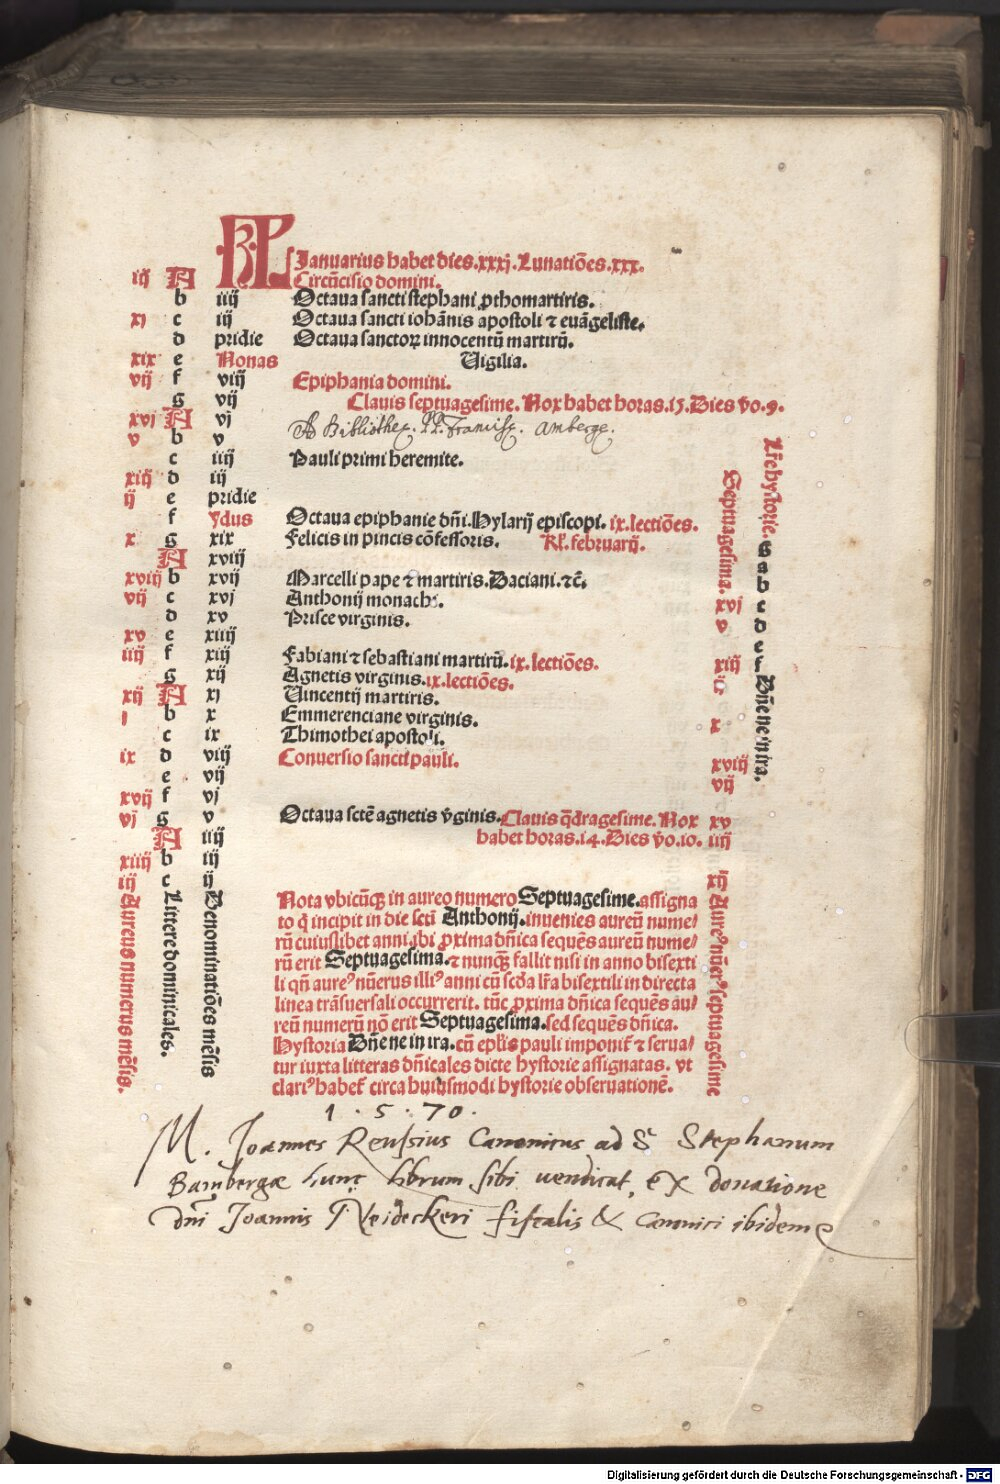 KL Januarius habet dies.xxxj.Lunatiōes.xxx.
iij A Circūcisio domini.
b iiij Octaua sancti stephani ꝓthomartiris.
xj c iij Octaua sancti iohānis apostoli ⁊ euāgeliste.
d pridie Octaua sanctoꝝ innocentū martirū.
xix e Nonas Uigilia.
vij f viij Epiphania domini.
g vij Clauis septuagesime. Nox habet horas.15.Dies ṽo.9.
xvj A vj Ad Bibliothec. PP. Francisc. Amberge.
v b v
c iiij Pauli primi heremite.
xiij d iij
ij e pridie
f ydus Octaua epiphanie dn̄i.Hylarij episcopi. ix.lectiōes.
x g xix Felicis in pincis cōfessoris. Kl̄.februarij.
A xviij
xviij b xvij Marcelli pape ⁊ martiris.Daciani.⁊c̄.
vij c xvj Anthonij monachi.
d xv Prisce virginis.
xv e xiiij
iiij f xiij Fabiani ⁊ sebastiani martirū.ix.lectiōes.
g xij Agnetis virginis.ix.lectiōes.
xij A xj Uincentij martiris.
j b x Emmerenciane virginis.
c ix Thimothei apostoli.
ix d viij Conuersio sancti pauli.
e vij
xvij f vj
vj g v Octaua sctē agnetis ṽginis.Clauis q̄dragesime. Nox
A iiij habet horas.14.Dies ṽo.10.
xiiij b iij
iij c ij
Aureus numerus mēsis.
Littere dominicales.
Denominatiōes mēsis
Nota vbicūqꝫ in aureo numero Septuagesime.assigna
to q̄ incipit in die sctī Anthonij.inuenies aureū nume/
rū cuiuslibet anni.ibi ꝓxima dn̄ica sequēs aureū nume/
rū erit Septuagesima.⁊ nunqꝫ fallit nisi in anno bisexti
li qn̄ aureꝰ nūerus illiꝰ anni cū scd̄a lr̄a bisextili in directa
linea trāsuersali occurrerit. tūc ꝓxima dn̄ica sequēs au/
reū numerū nō erit Septuagesima.sed sequēs dn̄ica.
Hystoria Dn̄e ne in ira.cū epl̄is pauli imponit̄ ⁊ serua/
tur iuxta litteras dn̄icales dicte hystorie assignatas. vt
clariꝰ habet̄ circa huiusmodi hystorie obseruationē.
Septuagesima.
xvj
v
xiij
ij
x
xviij
vij
xv
iiij
xij
Aureꝰ nūerꝰ septuagesime
Lr̄e hystorie.
g
a
b
c
d
e
f
Dn̄e ne in ira.
1.5.70.
M. Joannes Reussius Canonicus ad S. Stephanum
Bambergæ hunc librum sibi vendicat, ex donatione
dn̄i Joannis Neideckeri fiscalis & canonici ibidem
Digitalisierung gefördert durch die Deutsche Forschungsgemeinschaft - DFG